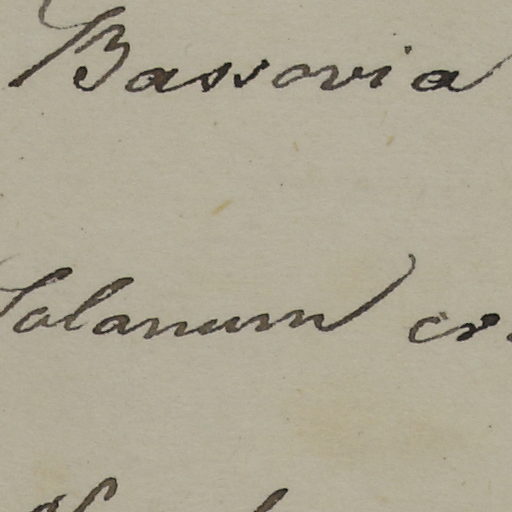 Bassovia
Solanum